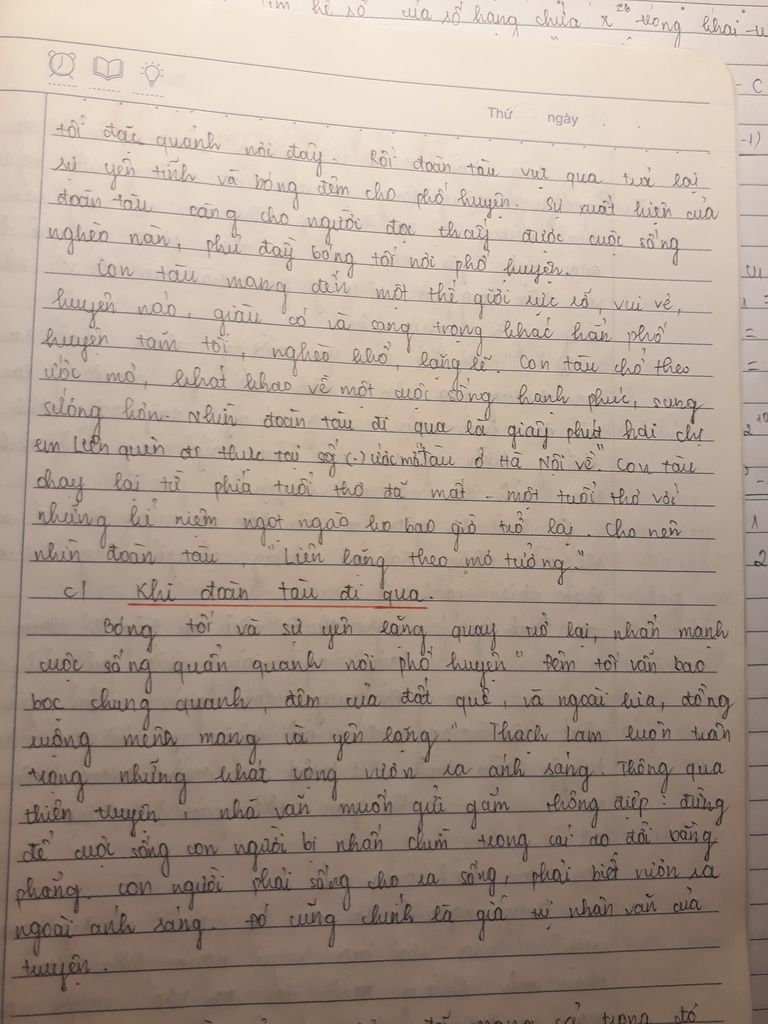 hệ số của số hạng chứa x²⁶ trong khai
Thứ ngày
tối đặc quánh nơi đây. Rồi đoàn tàu vụt qua trả lại
sự yên tĩnh và bóng đêm cho phố huyện. Sự xuất hiện của
đoàn tàu càng cho người đọc thấy được cuộc sống
nghèo nàn, phủ đầy bóng tối nơi phố huyện.
Con tàu mang đến một thế giới rực rỡ, vui vẻ,
huyên náo, giàu có và sang trọng khác hẳn phố
huyện tăm tối, nghèo khổ, lặng lẽ. Con tàu chở theo
ước mơ, khát khao về một cuộc sống hạnh phúc, sung
sướng hơn. Nhìn đoàn tàu đi qua là giây phút hai chị
em Liên quên đi thực tại (.) ước mơ "tàu ở Hà Nội về". Con tàu
chạy lại từ phía tuổi thơ đã mất - một tuổi thơ với
những kỉ niệm ngọt ngào ko bao giờ trở lại. Cho nên
nhìn đoàn tàu, "Liên lặng theo mơ tưởng."
c/ Khi đoàn tàu đi qua.
Bóng tối và sự yên lặng quay trở lại, nhấn mạnh
cuộc sống quẩn quanh nơi phố huyện "Đêm tối vẫn bao
bọc chung quanh, đêm của đất quê, và ngoài kia, đồng
ruộng mênh mang và yên lặng." Thạch Lam luôn trân
trọng những khát vọng vươn ra ánh sáng. Thông qua
thiên truyện, nhà văn muốn gửi gắm thông điệp: đừng
để cuộc sống con người bị nhấn chìm trong cái ao đời bằng
phẳng. con người phải sống cho ra sống, phải biết vươn ra
ngoài ánh sáng. Đó cũng chính là giá trị nhân văn của
truyện.